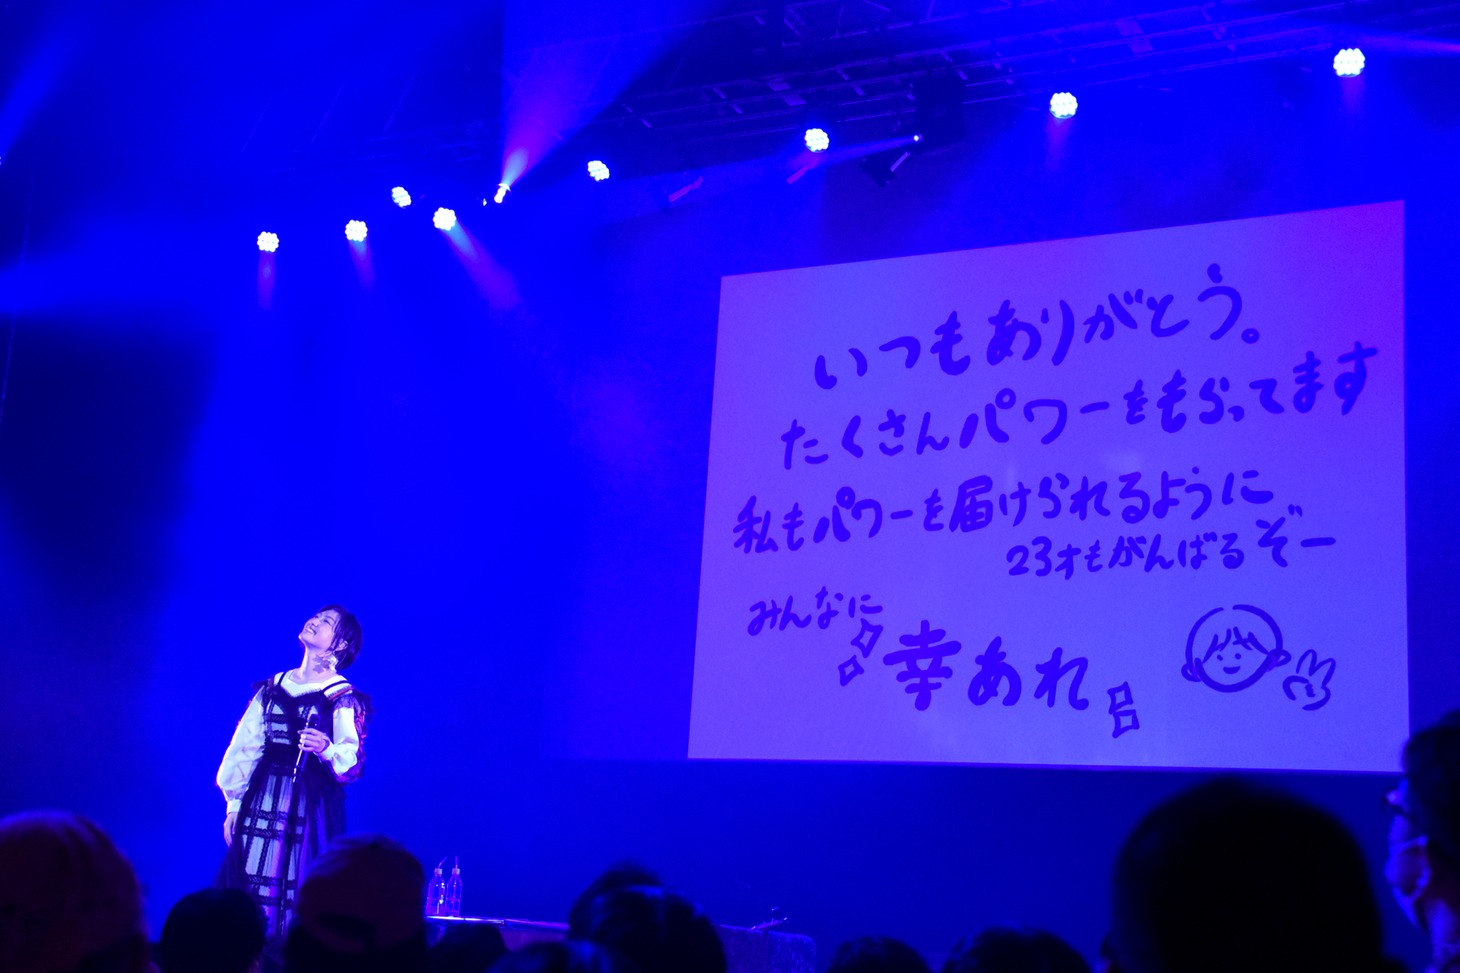 いつもありがとう。
たくさんパワーをもらってます
私もパワーを届けられるように
23才もがんばるぞー
みんなに
幸あれ